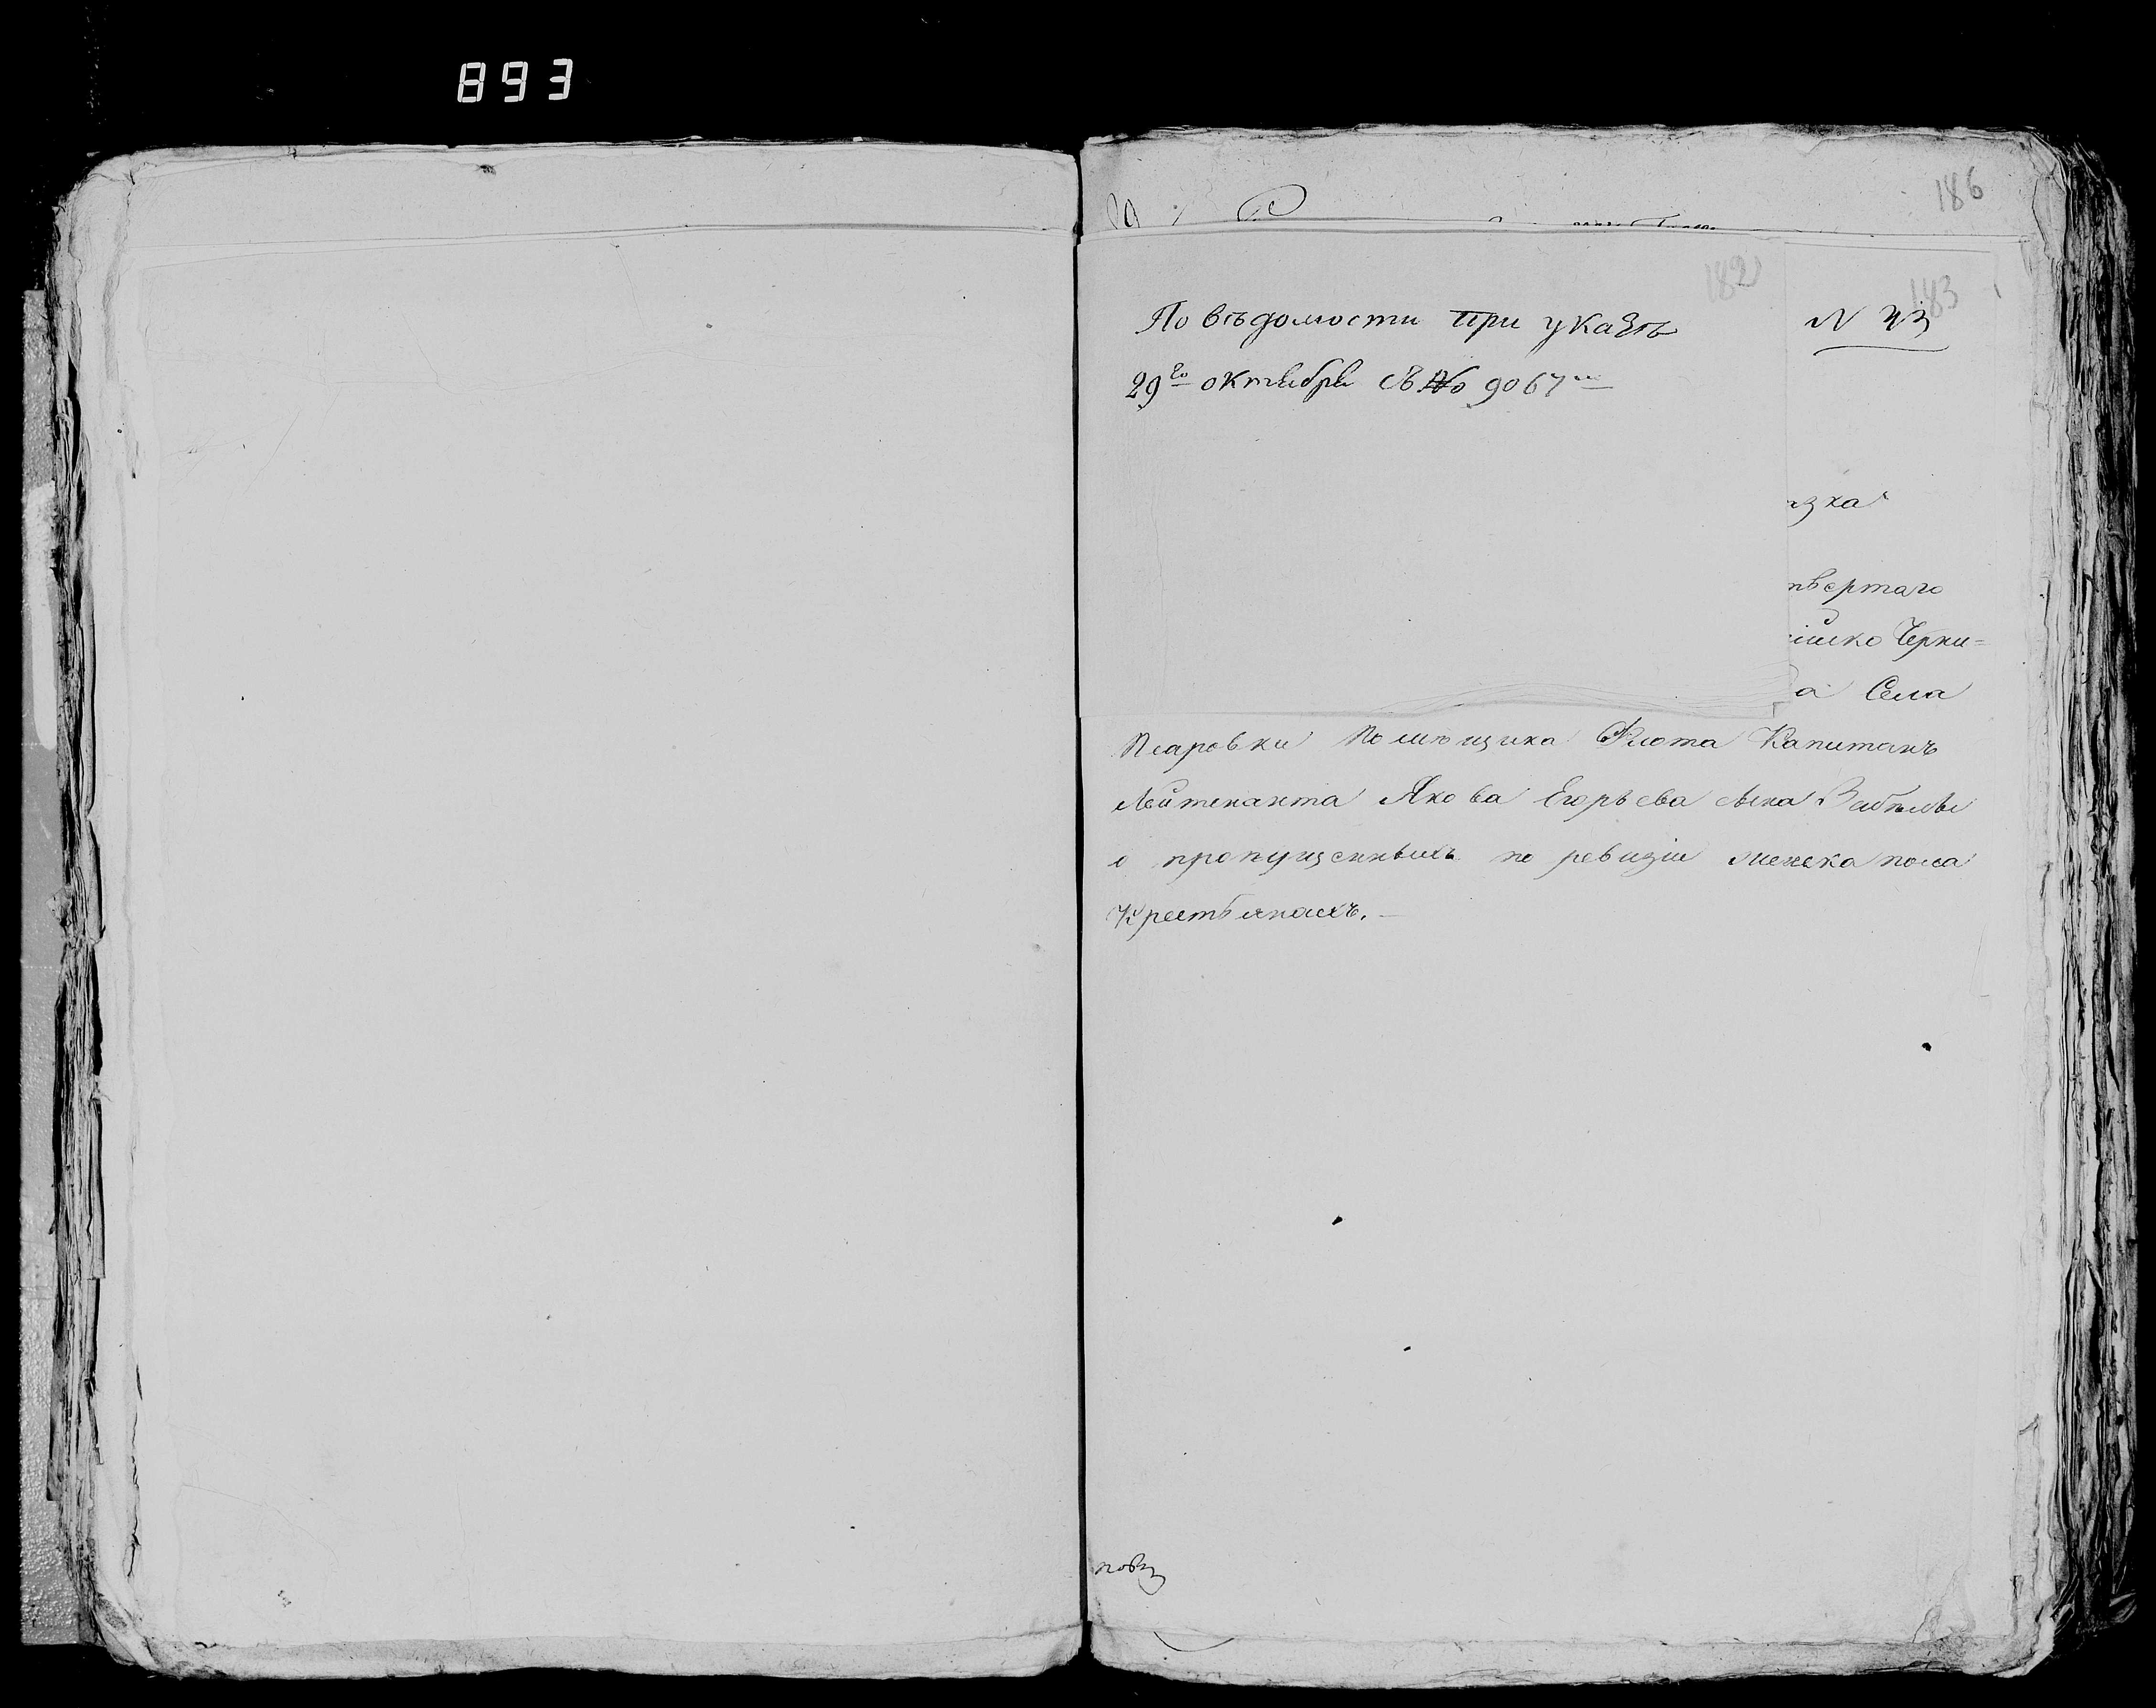 893
186
182
183
По вѣдомости при указѣ
29го октября съ № 9067м
N 43
зка
твертаго
ійско Черни=
а Села
Псаровки Помѣщика Флота Капитанъ
Лейтенанта Якова Егорьева сына
о пропущенныхъ по ревизіи женска пола
Крестьянахъ.